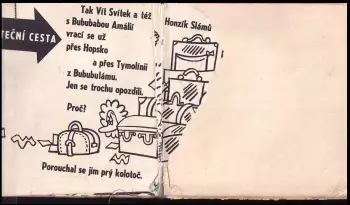 Tak Vít Svítek a též
Honzík Slámů
s Bububabou Amálií
vrací se už
EČNÍ CESTA
přes Hopsko
a přes Tymolínii
z Bububulámu.
Jen se trochu opozdili.
Proč?
Porouchal se jim prý kolotoč.